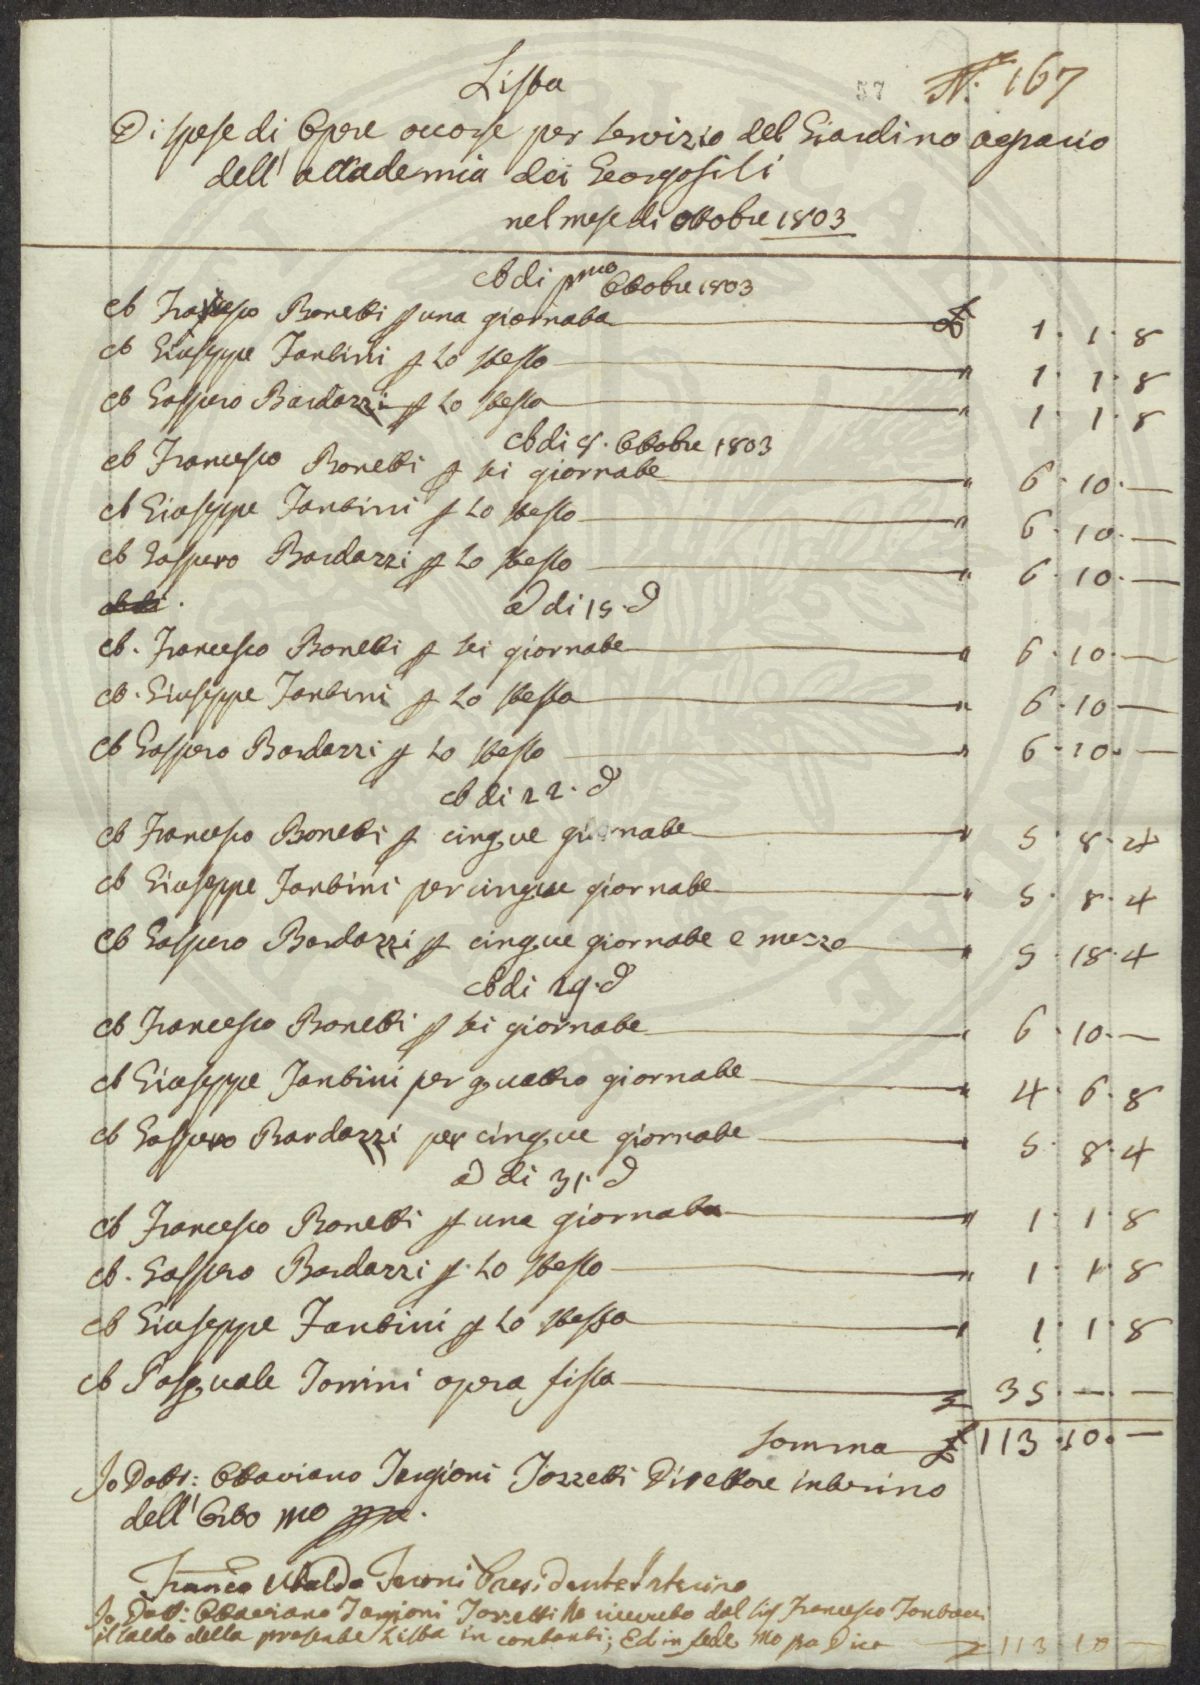 57 N. 167
Lista
Di spese di Opere occorse per servizio del Giardino agrario
dell' accademia dei Georgofili
nel mese di ottobre 1803
A di pmo Ottobre 1803
A Francesco Bonetti p una giornata £ 1. 1. 8
A Giuseppe Fantini p Lo stesso " 1. 1. 8
A Gaspero Bardazzi p Lo stesso " 1. 1. 8
A di 8. Ottobre 1803
A Francesco Bonetti p sei giornate " 6. 10. —
A Giuseppe Fantini p Lo stesso " 6. 10. —
A Gaspero Bardazzi p Lo stesso " 6. 10. —
A di 15. d
A. Francesco Bonetti p sei giornate " 6. 10. —
A. Giuseppe Fantini p Lo stesso " 6. 10. —
A Gaspero Bardazzi p Lo stesso " 6. 10. —
A di 22. d
A Francesco Bonetti p cinque giornate " 5. 8. 4
A Giuseppe Fantini per cinque giornate " 5. 8. 4
A Gaspero Bardazzi p cinque giornate e mezzo " 5. 18. 4
A di 29. d
A Francesco Bonetti p sei giornate " 6. 10. —
A Giuseppe Fantini per quattro giornate " 4. 6. 8
A Gaspero Bardazzi per cinque giornate " 5. 8. 4
A di 31. d
A Francesco Bonetti p una giornata " 1. 1. 8
A. Gaspero Bardazzi p. Lo stesso " 1. 1. 8
A Giuseppe Fantini p Lo stesso " 1. 1. 8
A Pasquale Tomini opera fissa 35. — —
Somma £ 113. 10. —
Io Dott: Ottaviano Targioni Tozzetti Direttore interino
dell' Orto mo ppa.
Ubaldo Feroni Presidente Interino
Io Dott: Ottaviano Targioni Tozzetti ho ricevuto dal Sig Francesco
il saldo della presente Lista in contanti; Ed in fede mo pa Dico £ 113 10 —